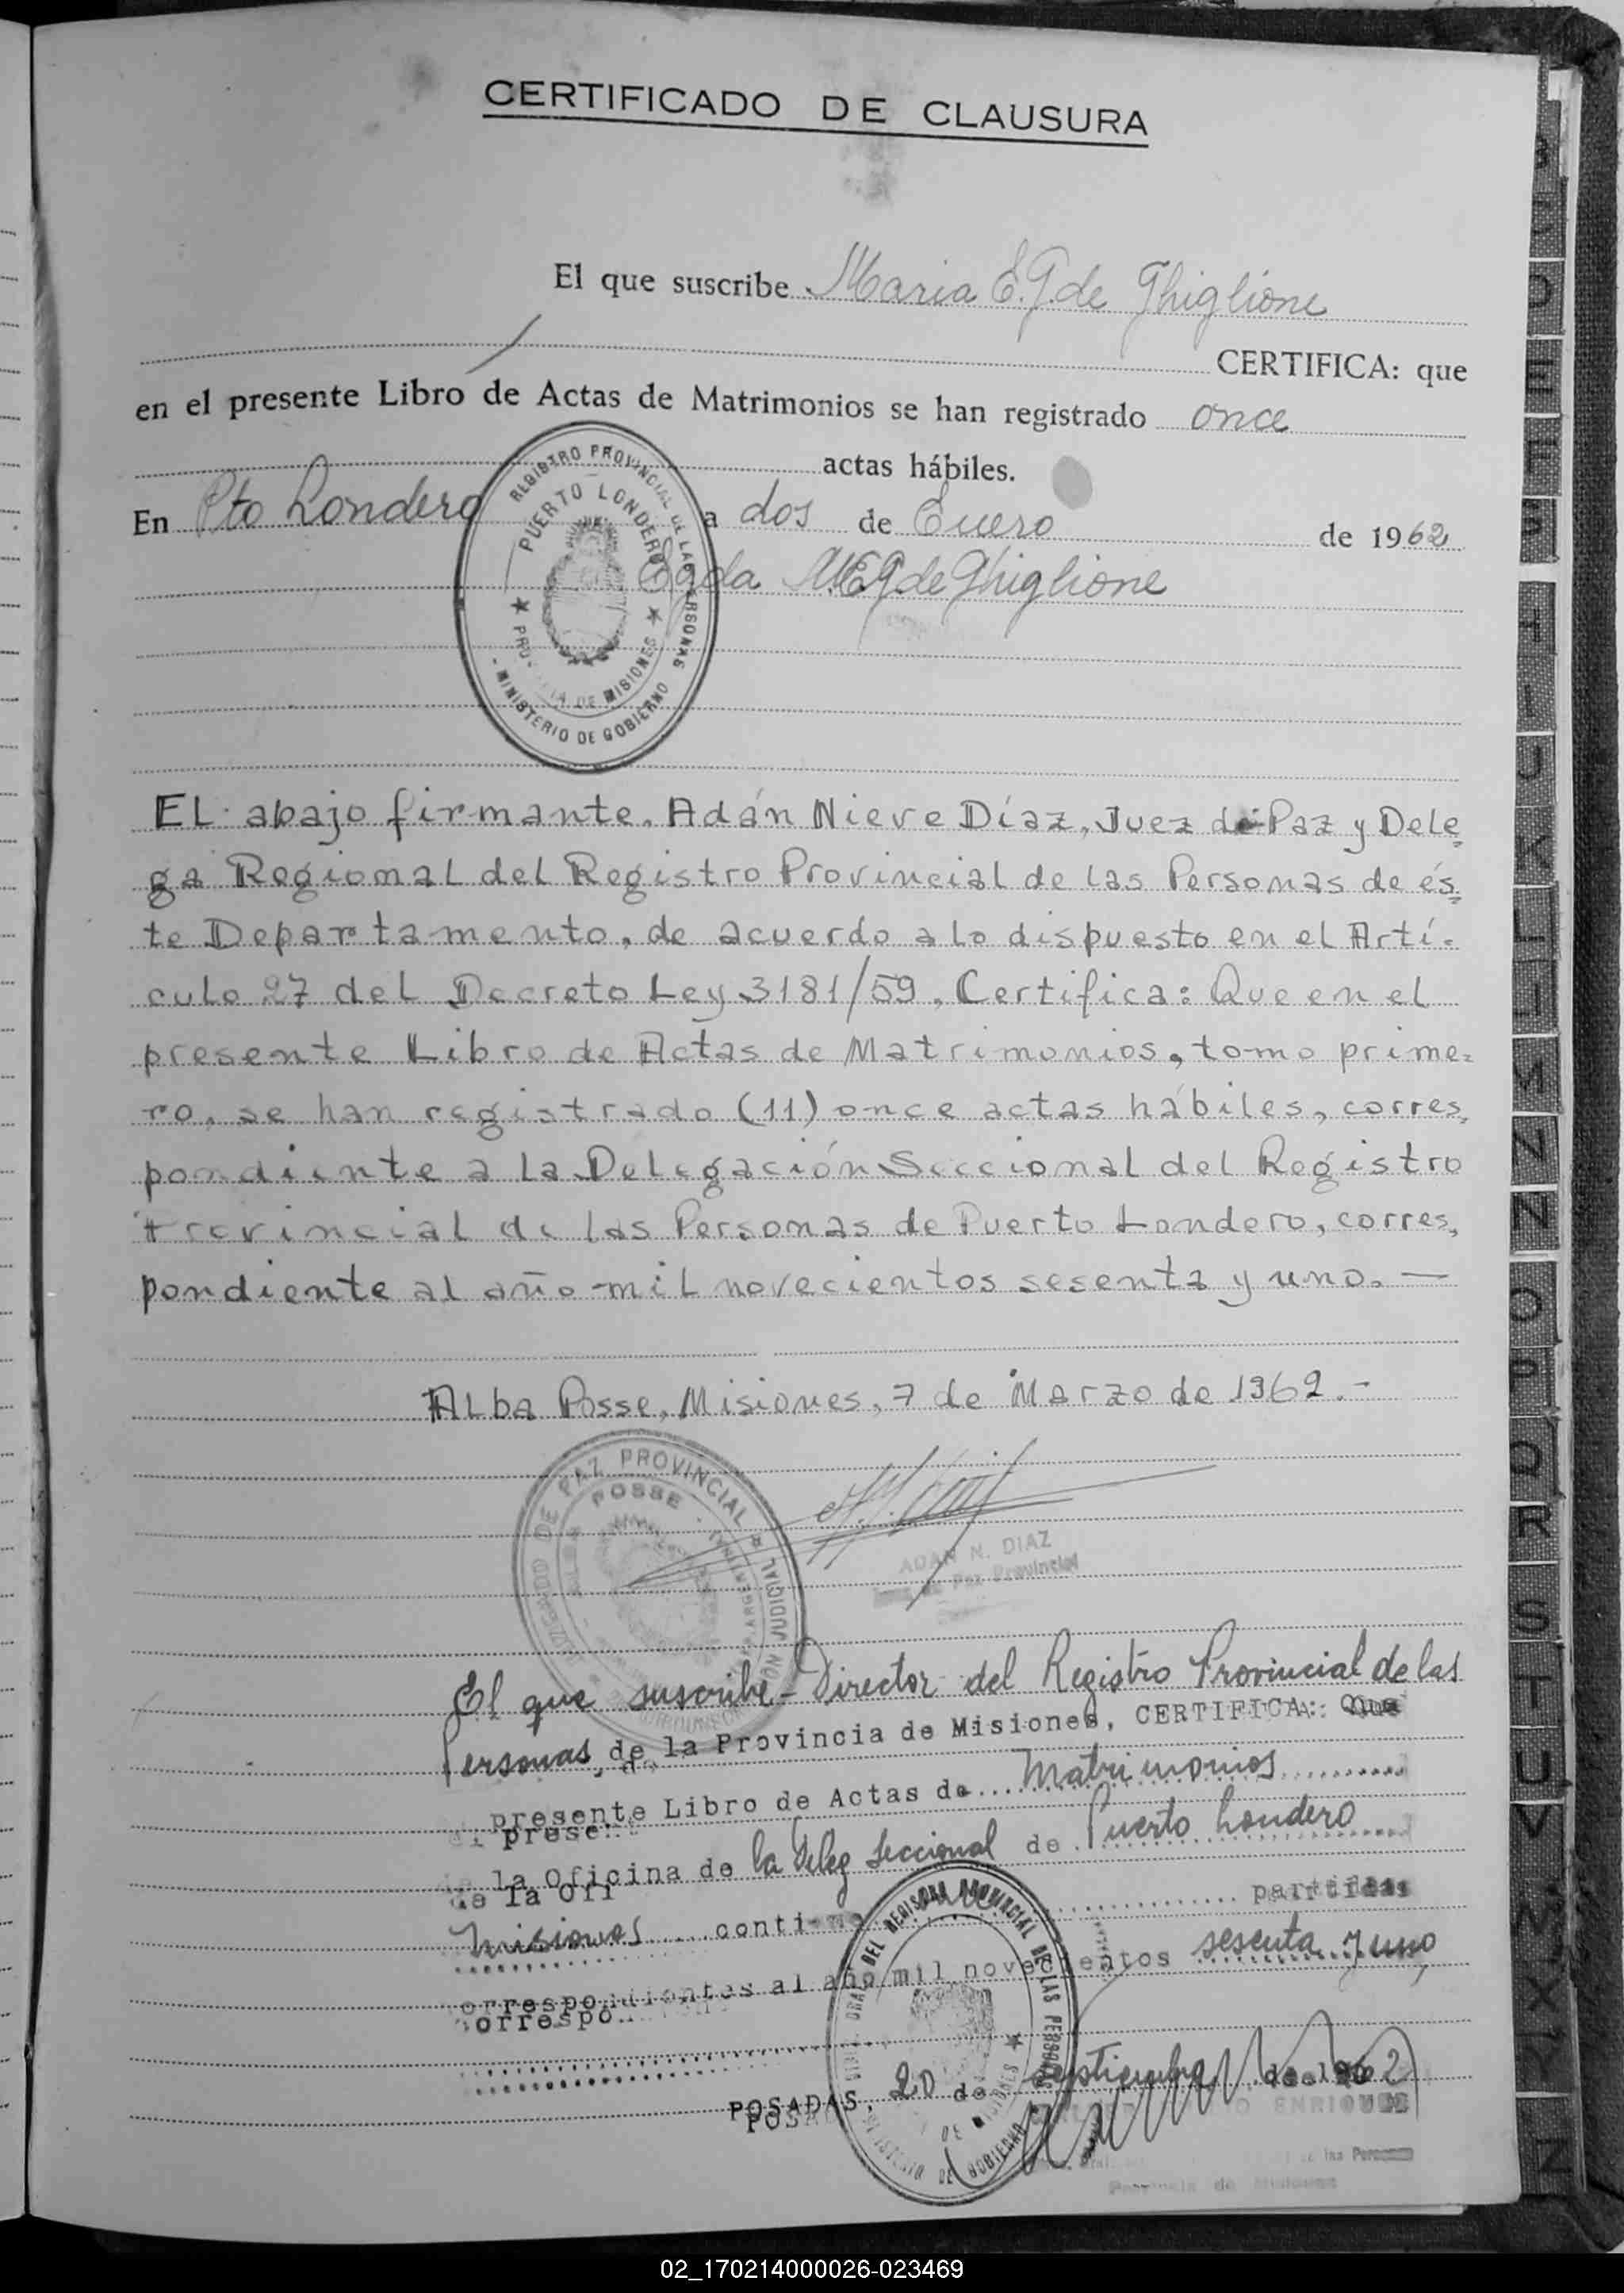 CERTIFICADO DE CLAUSURA
El que suscribe Maria E. G. de Ghiglione
CERTIFICA: que
en el presente Libro de Actas de Matrimonios se han registrado once
actas hábiles.
En Pto Londero a dos de Enero de 1962
M E G de Ghiglione
REGISTRO PROVINCIAL DE LAS PERSONAS
PUERTO LONDERO
PROVINCIA DE MISIONES
MINISTERIO DE GOBIERNO
EL abajo firmante, Adán Nieve Díaz, Juez de Paz y Dele=
ga Regional del Registro Provincial de las Personas de és=
te Departamento, de acuerdo a lo dispuesto en el Artí=
culo 27 del Decreto Ley 3181/59, Certifica: Que en el
presente Libro de Actas de Matrimonios, tomo prime=
ro, se han registrado (11) once actas hábiles, corres=
pondiente a la Delegación Seccional del Registro
Provincial de las Personas de Puerto Londero, corres=
pondiente al año mil novecientos sesenta y uno. —
Alba Posse, Misiones, 7 de Marzo de 1962.-
JUZGADO DE PAZ PROVINCIAL
POSSE
JUDICIAL
ADAN N. DIAZ
Juez de Paz Provincial
El que suscribe - Director del Registro Provincial de las
Personas, de la Provincia de Misiones, CERTIFICA: Que
presente Libro de Actas de Matrimonios
de la Oficina de la Deleg Seccional de Puerto Londero
Misiones contiene partidas
correspondientes al año mil novecientos sesenta y uno
DEL REGISTRO PROVINCIAL DE LAS PERSONAS
MINISTERIO DE GOBIERNO
POSADAS, 20 de septiembre de 1962
ENRIQUEZ
Provincia de Misiones
D
E
F
H
I
J
K
L
M
N
Ñ
O
P
Q
R
S
T
U
V
X
Z
02_170214000026-023469